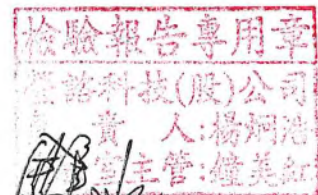 檢驗報告專用章
科技(股)公司
責 人:楊炯浩
主管:鍾美紅